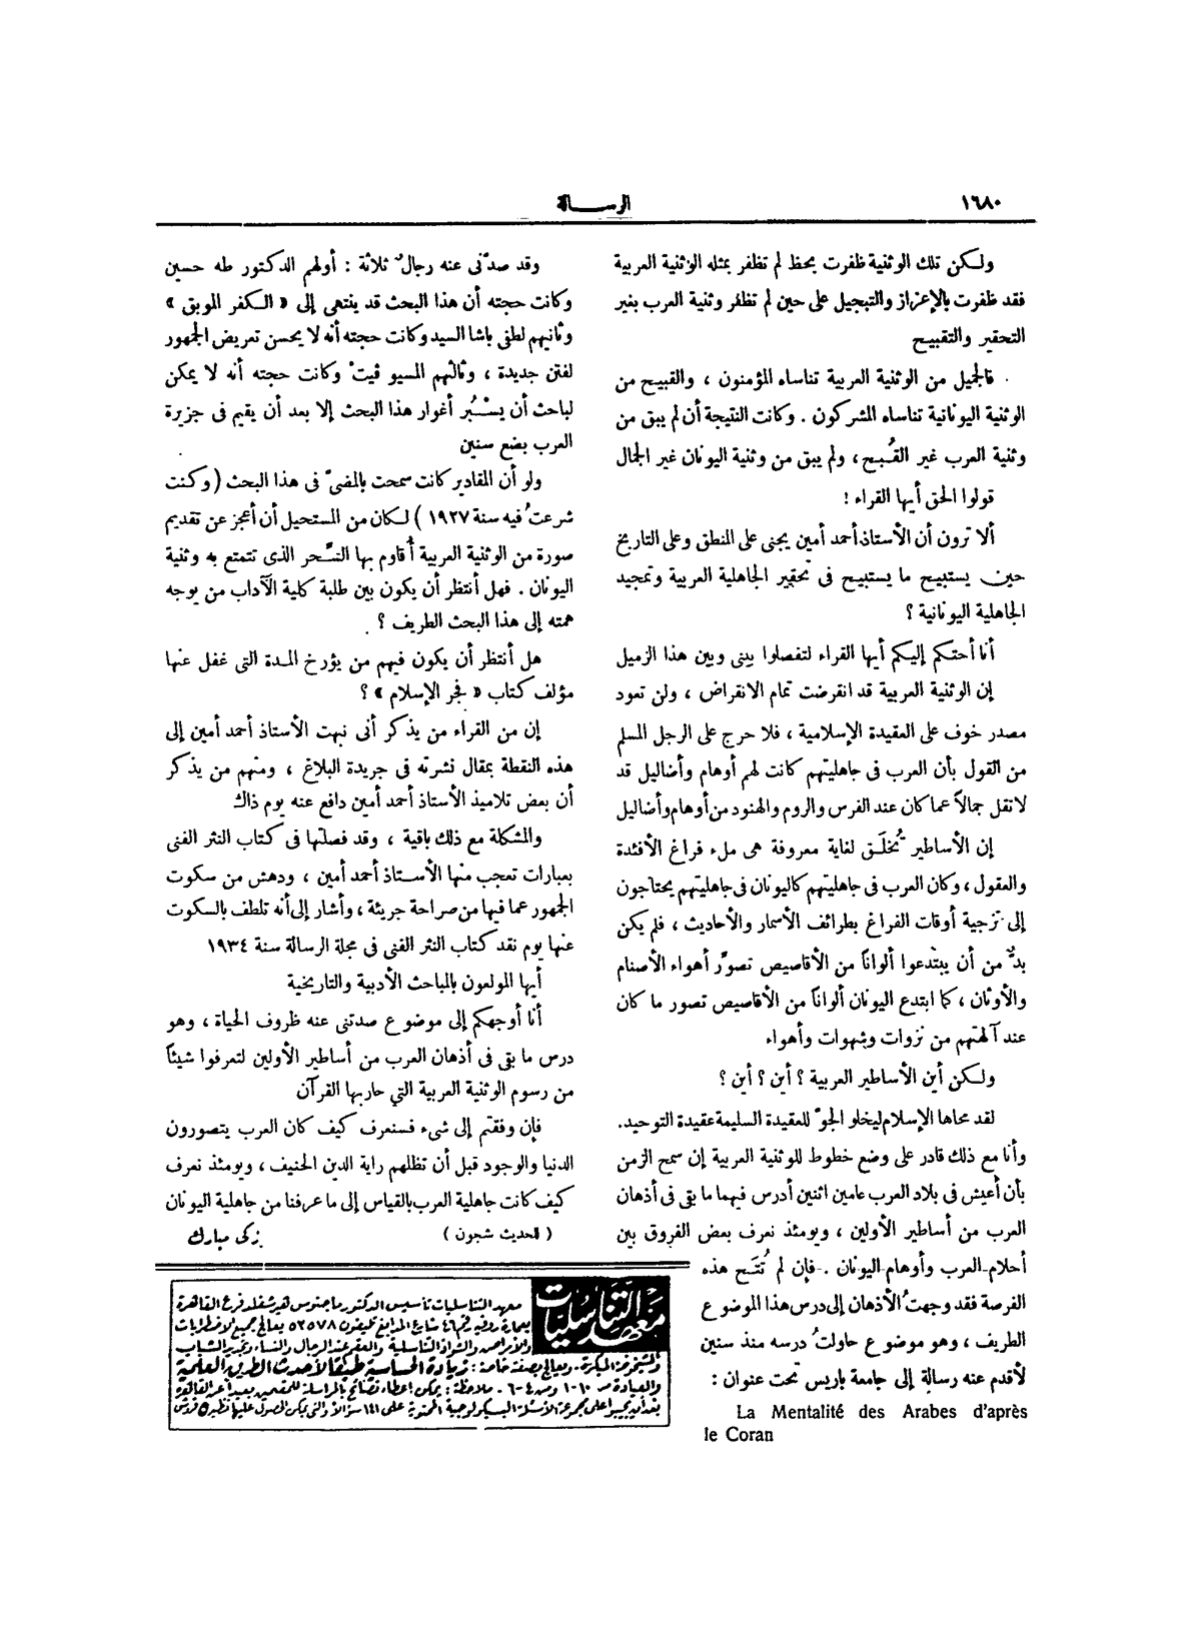 ١٦٨٠
الرسالة
ولكن تلك الوثنية ظفرت بحظ لم تظفر بمثله الوثنية العربية
فقد ظفرت بالإعزاز والتبجيل على حين لم تظفر وثنية العرب بغير
التحقير والتقبيح
فالجميل من الوثنية العربية تناساه المؤمنون ، والقبيح من
الوثنية اليونانية تناساه المشركون . وكانت النتيجة أن لم يبق من
وثنية العرب غير القُبح ، ولم يبق من وثنية اليونان غير الجمال
قولوا الحق أيها القراء !
ألا ترون أن الأستاذ أحمد أمين يجنى على المنطق وعلى التاريخ
حين يستبيح ما يستبيح فى تحقير الجاهلية العربية وتمجيد
الجاهلية اليونانية ؟
أنا أحتكم إليكم أيها القراء لتفصلوا بينى وبين هذا الزميل
إن الوثنية العربية قد انقرضت تمام الانقراض ، ولن تعود
مصدر خوف على العقيدة الإسلامية ، فلا حرج على الرجل المسلم
من القول بأن العرب فى جاهليتهم كانت لهم أوهام وأضاليل قد
لا تقل جمالاً عما كان عند الفرس والروم والهنود من أوهام وأضاليل
إن الأساطير تُخلَق لغاية معروفة هى ملء فراغ الأفئدة
والعقول ، وكان العرب فى جاهليتهم كاليونان فى جاهليتهم يحتاجون
إلى تزجية أوقات الفراغ بطرائف الأسمار والأحاديث ، فلم يكن
بدٌّ من أن يبتدعوا ألواناً من الأقاصيص تصوِّر أهواء الأصنام
والأوثان ، كما ابتدع اليونان ألواناً من الأقاصيص تصور ما كان
عند آلهتهم من نزوات وشهوات وأهواء
ولكن أين الأساطير العربية ؟ أين ؟ أين ؟
لقد محاها الإسلام ليخلو الجوّ للعقيدة السليمة عقيدة التوحيد .
وأنا مع ذلك قادر على وضع خطوط للوثنية العربية إن سمح الزمن
بأن أعيش فى بلاد العرب عامين اثنين أدرس فيهما ما بقى فى أذهان
العرب من أساطير الأولين ، ويومئذ نعرف بعض الفروق بين
أحلام العرب وأوهام اليونان . فإن لم تُتَح هذه
الفرصة فقد وجهتُ الأذهان إلى درس هذا الموضوع
الطريف ، وهو موضوع حاولتُ درسه منذ سنين
لأقدم عنه رسالة إلى جامعة باريس تحت عنوان :
La Mentalité des Arabes d'après
le Coran
وقد صدّنى عنه رجالٌ ثلاثة : أولهم الدكتور طه حسين
وكانت حجته أن هذا البحث قد ينتهى إلى « الكفر الموبق »
وثانيهم لطفى باشا السيد وكانت حجته أنه لا يحسن تعريض الجمهور
لفتن جديدة ، وثالثهم المسيو ڤيتْ وكانت حجته أنه لا يمكن
لباحث أن يسْبُر أغوار هذا البحث إلا بعد أن يقيم فى جزيرة
العرب بضع سنين
ولو أن المقادير كانت سمحت بالمضىّ فى هذا البحث ( وكنت
شرعتُ فيه سنة ١٩٢٧ ) لكان من المستحيل أن أعجز عن تقديم
صورة من الوثنية العربية أُقاوم بها السِّحر الذى تتمتع به وثنية
اليونان . فهل أنتظر أن يكون بين طلبة كلية الآداب من يوجه
همته إلى هذا البحث الطريف ؟
هل أنتظر أن يكون فيهم من يؤرخ المدة التى غفل عنها
مؤلف كتاب « فجر الإسلام » ؟
إن من القراء من يذكر أنى نبهت الأستاذ أحمد أمين إلى
هذه النقطة بمقال نشرته فى جريدة البلاغ ، ومنهم من يذكر
أن بعض تلاميذ الأستاذ أحمد أمين دافع عنه يوم ذاك
والمشكلة مع ذلك باقية ، وقد فصلتها فى كتاب النثر الفنى
بعبارات تعجب منها الأستاذ أحمد أمين ، ودهش من سكوت
الجمهور عما فيها من صراحة جريئة ، وأشار إلى أنه تلطف بالسكوت
عنها يوم نقد كتاب النثر الفنى فى مجلة الرسالة سنة ١٩٣٤
أيها المولعون بالمباحث الأدبية والتاريخية
أنا أوجهكم إلى موضوع صدتنى عنه ظروف الحياة ، وهو
درس ما بقى فى أذهان العرب من أساطير الأولين لتعرفوا شيئاً
من رسوم الوثنية العربية التي حاربها القرآن
فإن وفقتم إلى شىء فسنعرف كيف كان العرب يتصورون
الدنيا والوجود قبل أن تظلهم راية الدين الحنيف ، ويومئذ نعرف
كيف كانت جاهلية العرب بالقياس إلى ما عرفنا من جاهلية اليونان
( للحديث شجون )
زكى مبارك
معهد التناسليات
معهد التناسليات تأسيس الدكتور ماجنوس هيرشفلد فرع القاهرة
بعمارة روفيه رقم ٤٦ شارع المدابغ تليفون ٥٢٥٧٨ يعالج جميع الاضطرابات
والأمراض والشواذ التناسلية والعقم عند الرجال والنساء وتجديد الشباب
والشيخوخة المبكرة . ويعالج بصفة خاصة : زيادة الحساسية طبقا لأحدث الطرق العلمية
والعيادة من ١٠-١ ومن ٤-٦ . ملاحظة : يمكن إعطاء نصائح بالمراسلة للمقيمين بعيدا عن القاهرة
بعد أن يجيبوا على مجموعة الأسئلة البسيكولوجية المحتوية على ١٤١ سؤالا والتى يمكن الحصول عليها نظير ٥ قروش